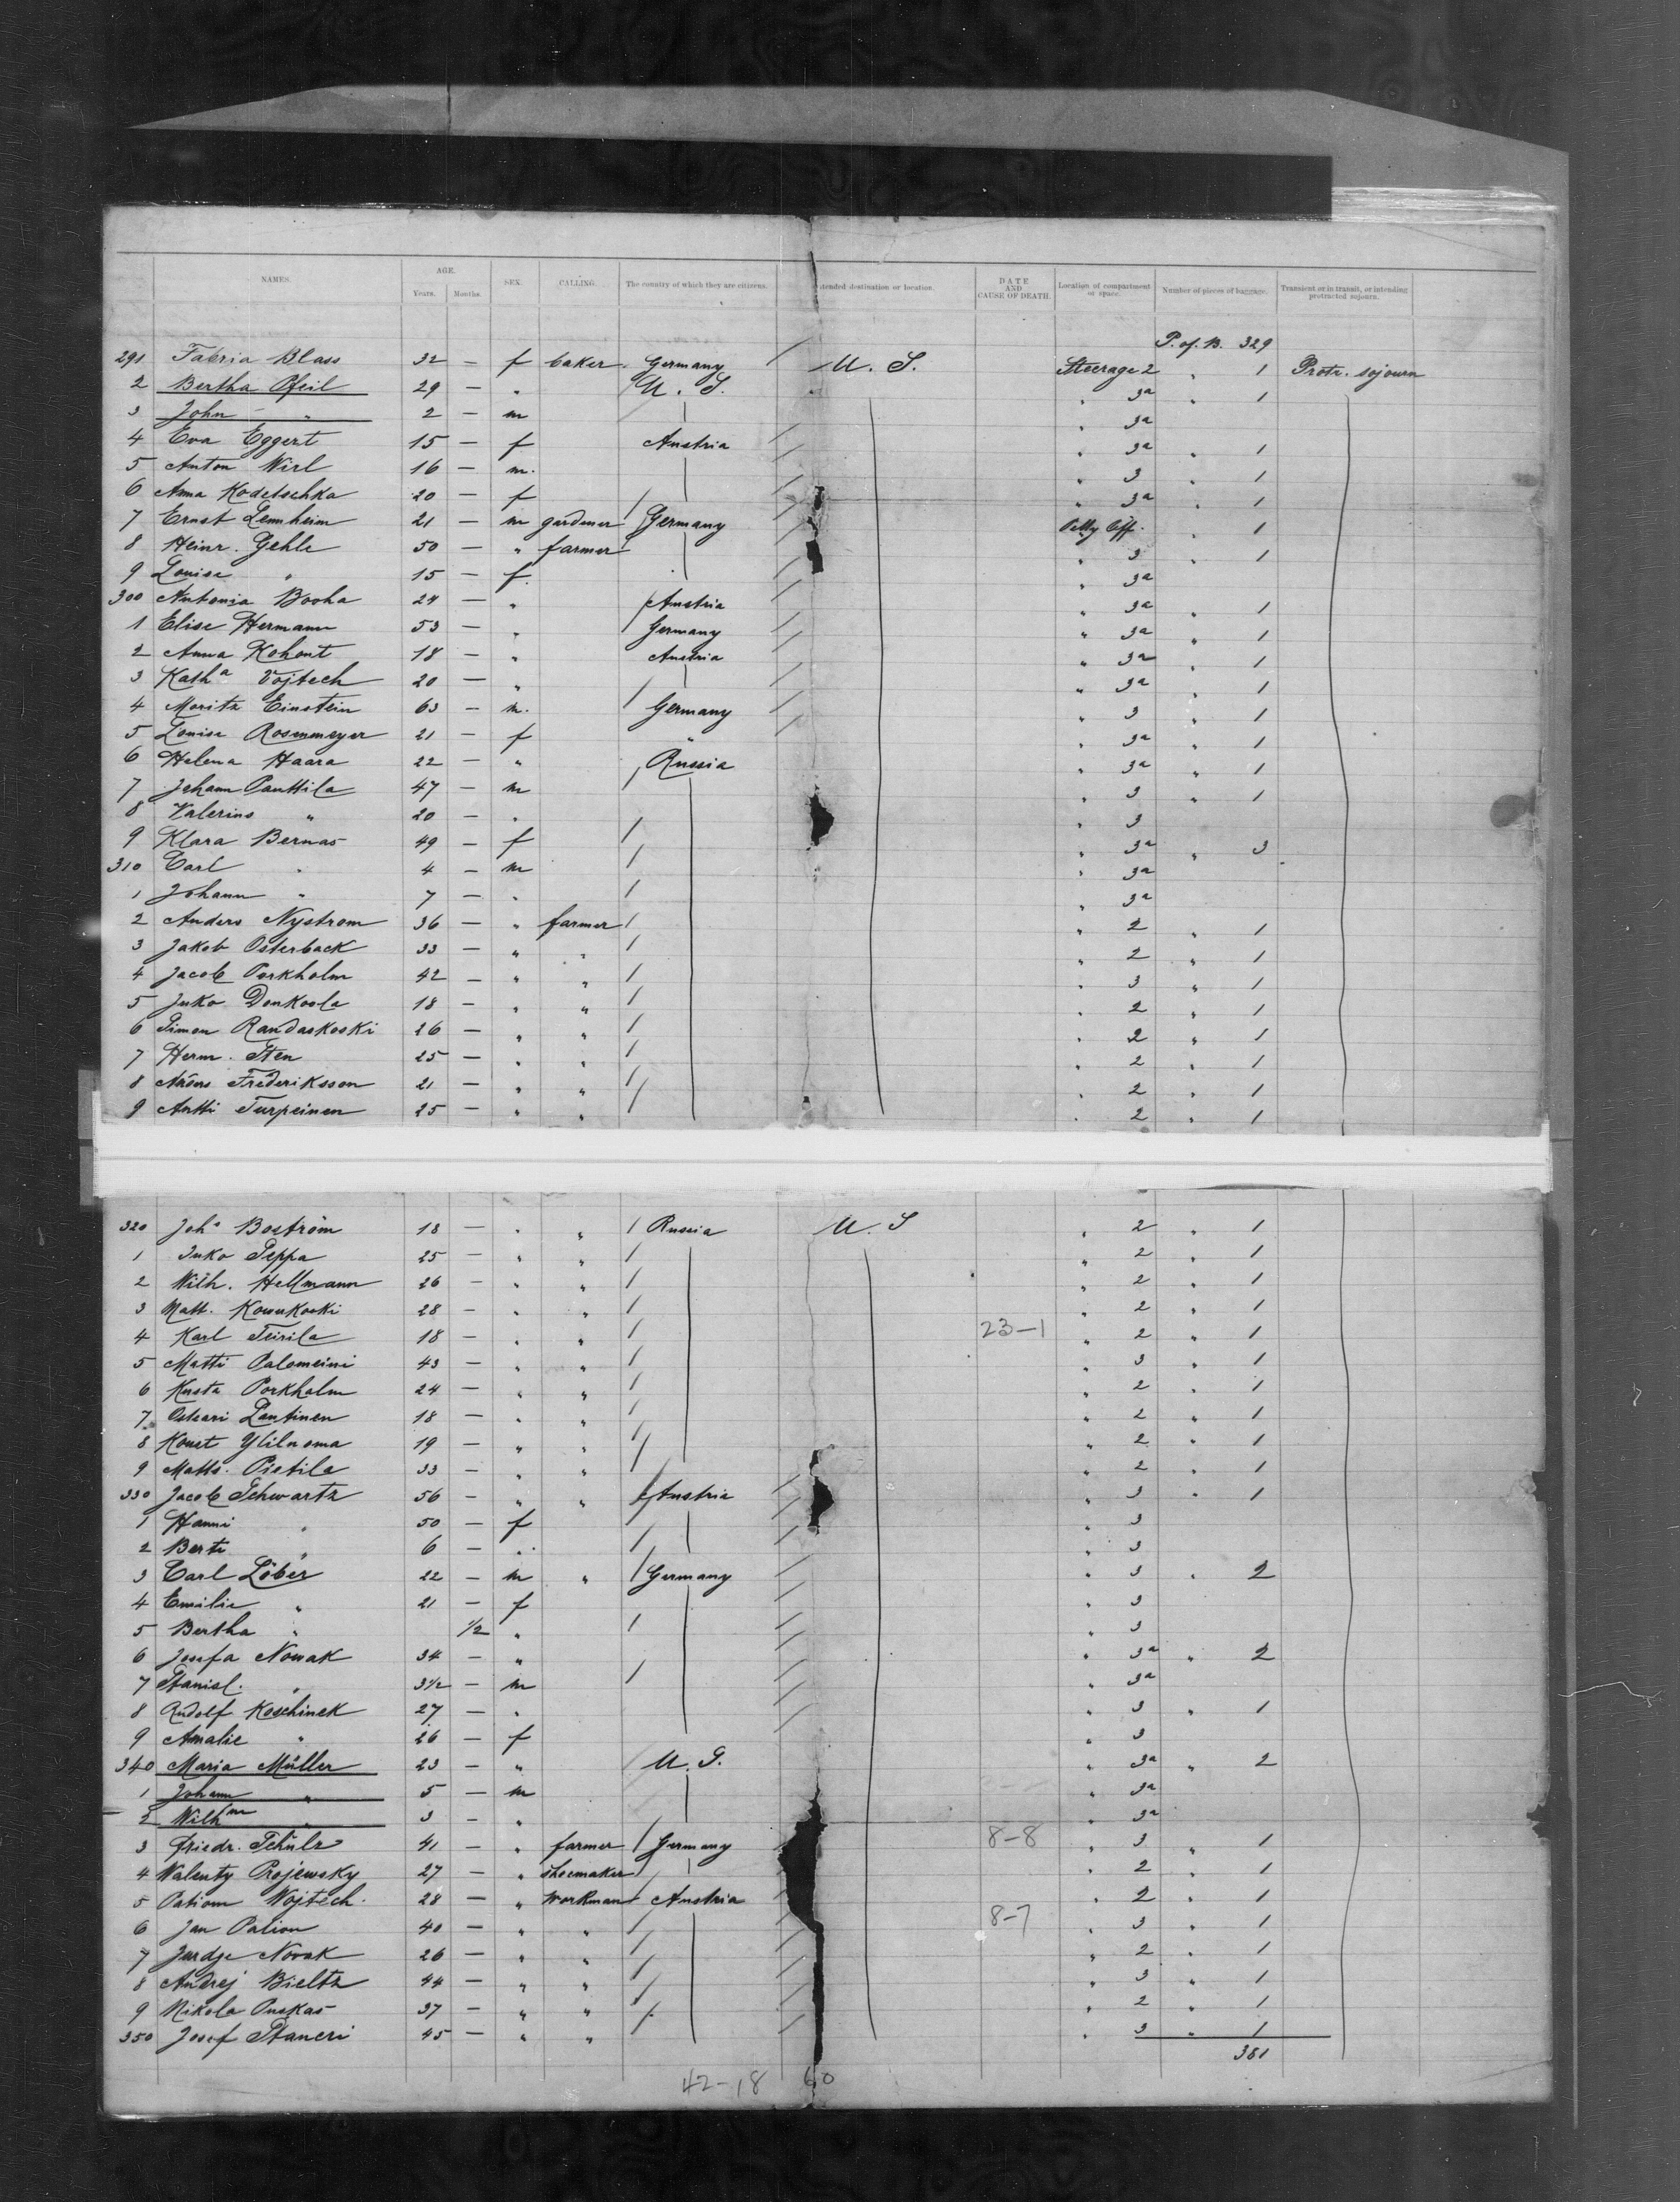 NAMES. AGE. Years. Months. SEX. CALLING. The country of which they are citizens. tended destination or location. DATE AND CAUSE OF DEATH. Location of compartment or space. Number of pieces of baggage. Transient or in transit, or intending protracted sojourn.
P. of B. 329
291 Fabria Blass 32 — f baker Germany U. S. Steerage 2 " 1 Protr. sojourn
2 Bertha Pfeil 29 — " U. S. " 3a " 1
3 John " 2 — m " 3a
4 Eva Eggert 15 — f Austria " 3a " 1
5 Anton Wirl 16 — m. " 3 " 1
6 Anna Kodetschka 20 — f " 3a " 1
7 Ernst Lennheim 21 — m gardener Germany Petty Off. " 1
8 Heinr. Gehle 50 — " farmer " 3 " 1
9 Louise " 15 — f. " 3a
300 Antonia Booha 24 — " Austria " 3a " 1
1 Elise Hermann 53 — " Germany " 3a " 1
2 Anna Kohout 18 — " Austria " 3a " 1
3 Kath a Vojtech 20 — " " 3a " 1
4 Moritz Einstein 63 — m. Germany " 3 " 1
5 Louise Rosenmeyer 21 — f " " 3a " 1
6 Helena Haara 22 — " Russia " 3a " 1
7 Johann Panttila 47 — m " 3 " 1
8 Valerius " 20 — " " 3
9 Klara Bernas 49 — f " 3a " 3
310 Carl " 4 — m " 3a
1 Johann " 7 — " " 3a
2 Anders Nystrom 36 — " farmer " 2 " 1
3 Jakob Osterback 33 — " " " 2 " 1
4 Jacob Porkholm 42 — " " " 3 " 1
5 Juko Donkoola 18 — " " " 2 " 1
6 Simon Randaskoski 26 — " " " 2 " 1
7 Herm. Sten 25 — " " " 2 " 1
8 Frederiksson 21 — " " " 2 " 1
9 Antti Turpeinen 25 — " " " 2 " 1
320 Joh a Boström 18 — " " Russia U. S " 2 " 1
1 Juko Seppa 25 — " " " 2 " 1
2 Wilh. Hellmann 26 — " " " 2 " 1
3 Matt. 28 — " " " 2 " 1
4 Karl Teirila 18 — " " 23-1 " 2 " 1
5 Matti Palomeini 43 — " " " 3 " 1
6 Kusta Porkholm 24 — " " " 2 " 1
7 Oskari Lantinen 18 — " " " 2 " 1
8 Konst Ylilnoma 19 — " " " 2 " 1
9 Matts. Pietila 33 — " " " 2 " 1
330 Jacob Schwartz 56 — " " Austria " 3 " 1
1 Hanni " 50 — f " 3
2 Berti " 6 — " " 3
3 Carl Löber 22 — m " Germany " 3 " 2
4 Emilie " 21 — f " 3
5 Bertha " 1/2 " " 3
6 Josefa Nowak 34 — " " 3a " 2
7 Stanisl. " 3 1/2 — m " 3a
8 Rudolf Koschinek 27 — " " 3 " 1
9 Amalie " 26 — f " 3
340 Maria Müller 23 — " U. S. " 3a " 2
1 Johann " 5 — m " 3a
2 Wilhm " 3 — " " 3a
3 Friedr. Schulz 41 — " farmer Germany 8-8 " 3 " 1
4 Walenty Projewsky 27 — " shoemaker " 2 " 1
5 Patiom Wojtech. 28 — " workman Austria " 2 " 1
6 Jan Palion 40 — " " 8-7 " 3 " 1
7 Jurdge Novak 26 — " " " 2 " 1
8 Andrej Bieltz 44 — " " " 3 " 1
9 Nikola Puskas 37 — " " " 2 " 1
350 Josef Staneri 45 — " " " 3 " 1
381
42-18 60